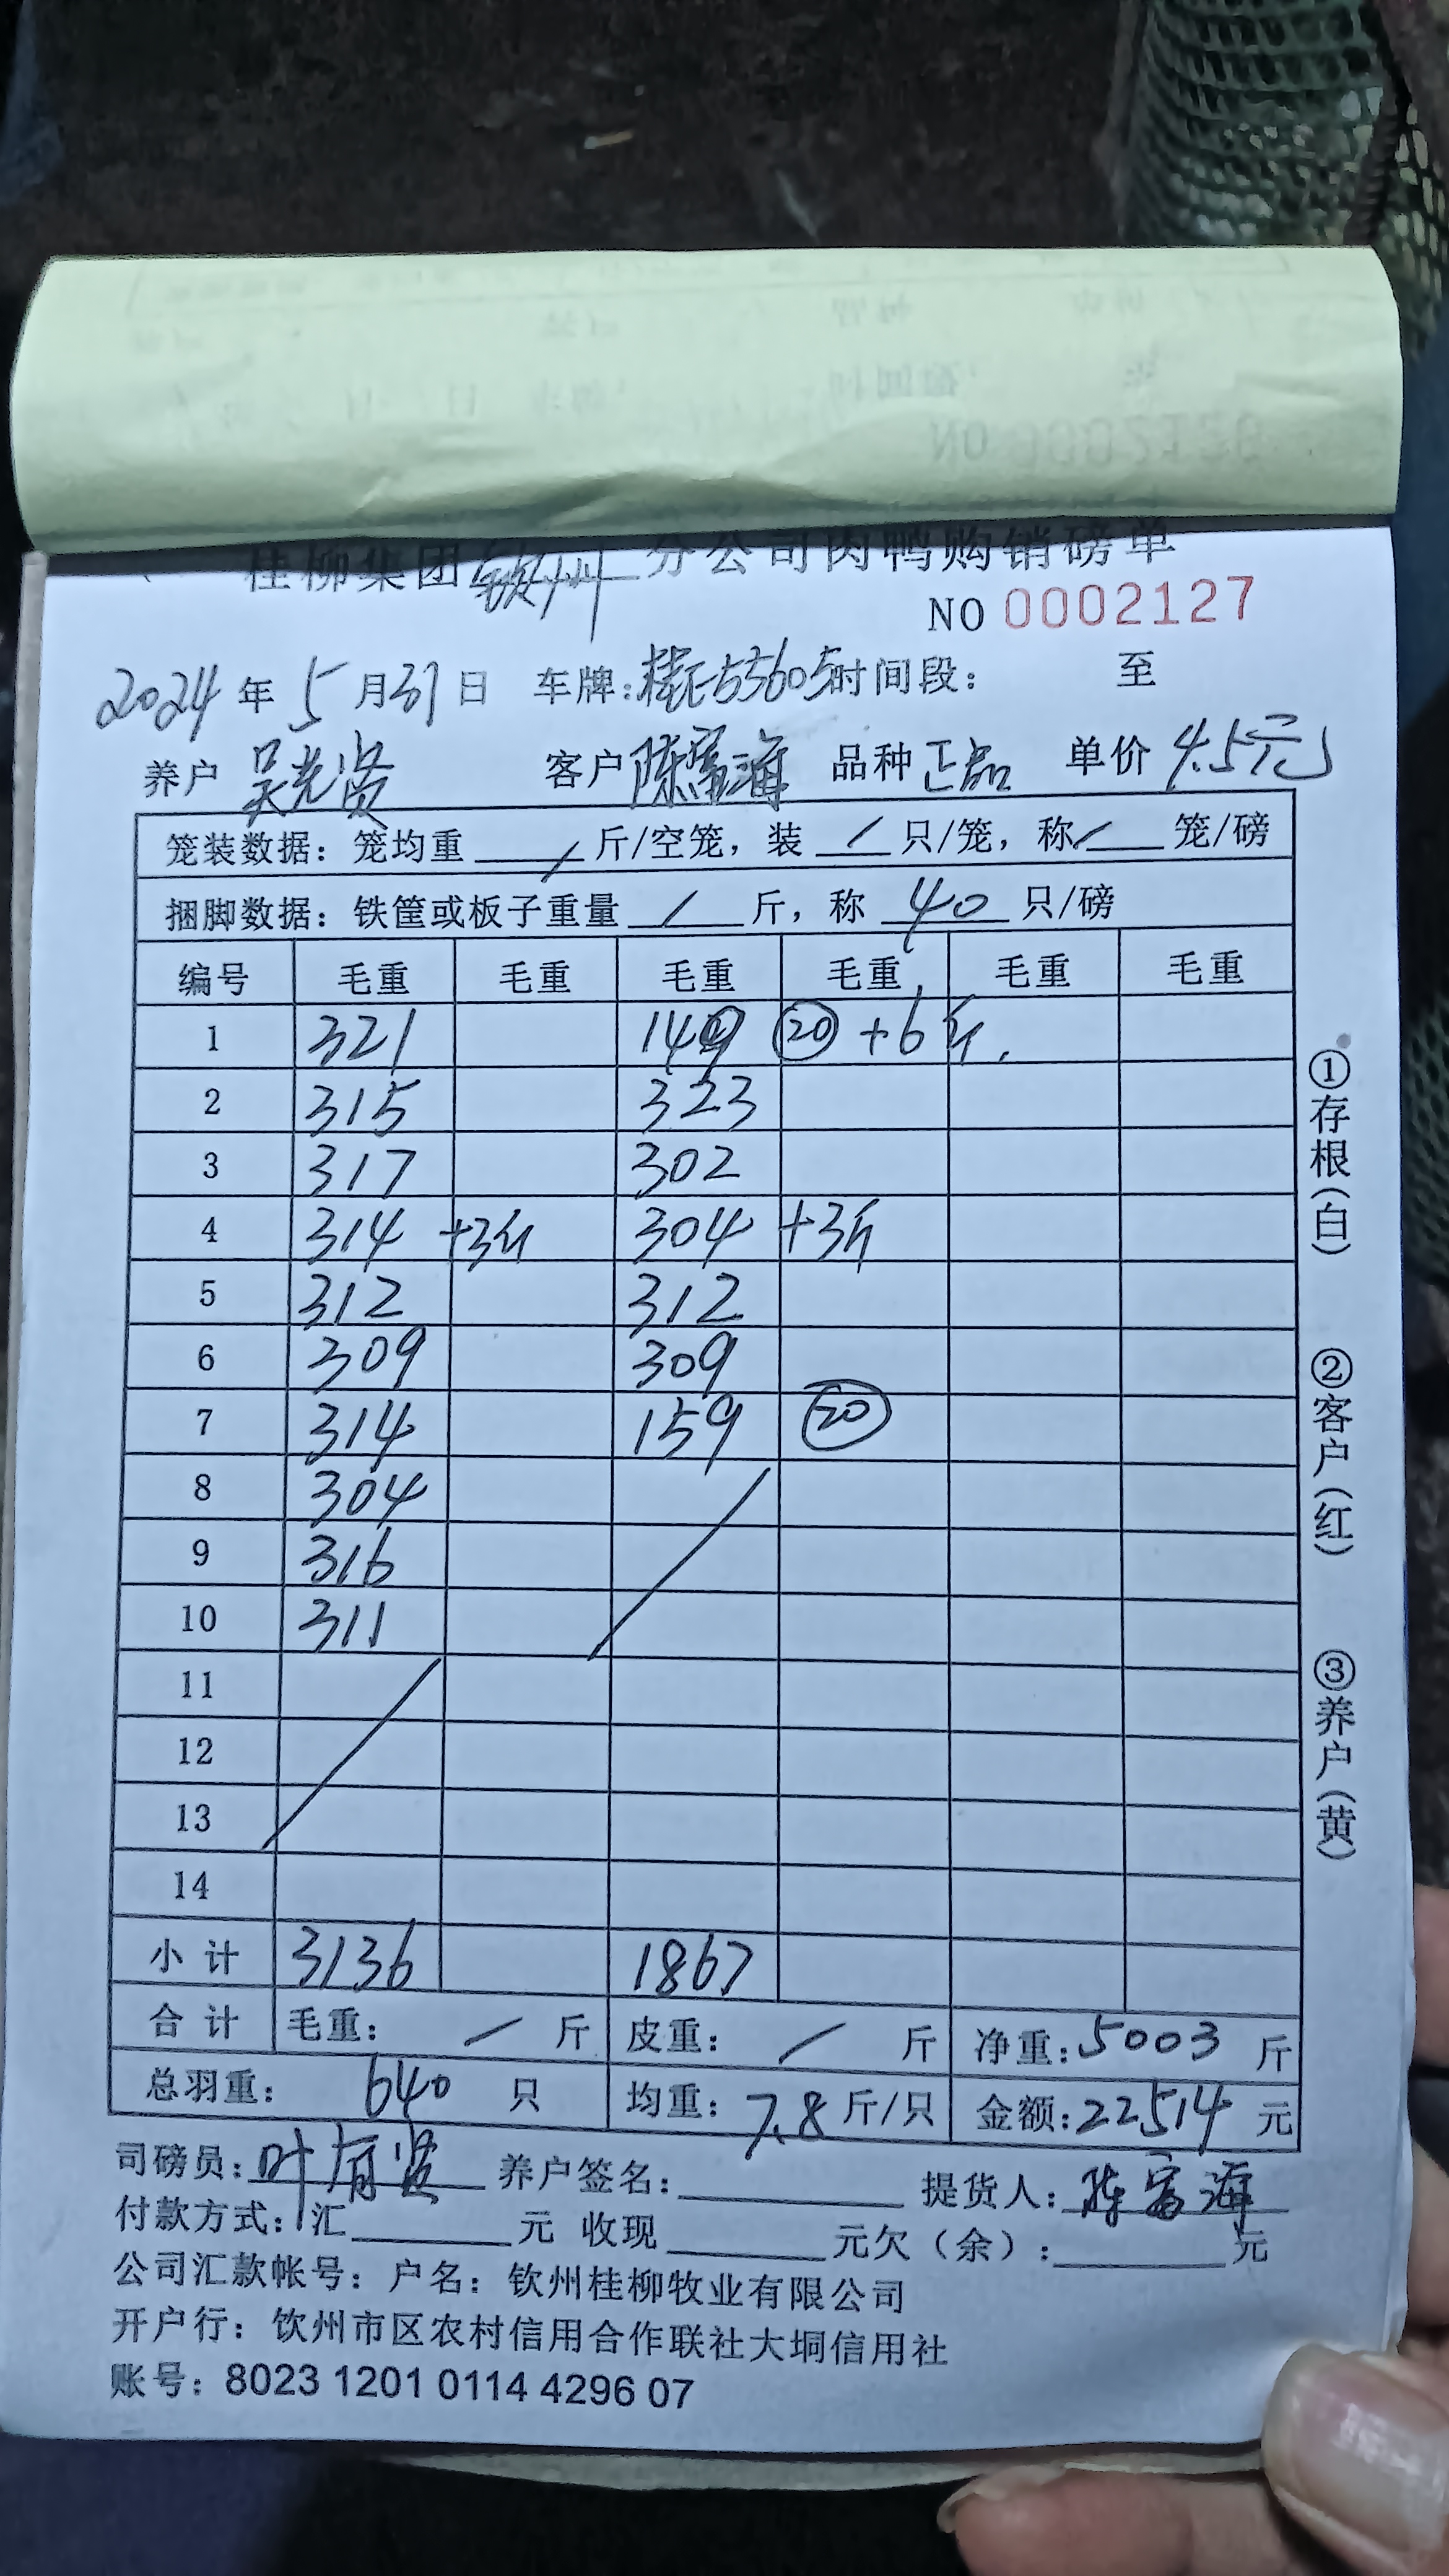 桂柳集团钦州分公司肉鸭购销磅单
NO 0002127
2024年5月31日 车牌:桂E53605时间段: 至
养户 吴光贤 客户 陈富海 品种 正品 单价 4.5元
笼装数据: 笼均重 / 斤/空笼, 装 / 只/笼, 称 / 笼/磅
捆脚数据: 铁筐或板子重量 / 斤, 称 40 只/磅
编号 毛重 毛重 毛重 毛重 毛重 毛重
1 321 149 ⑳ +6斤.
2 315 323
3 317 302
4 314 +3斤 304 +3斤
5 312 312
6 309 309
7 314 159 ⑳
8 304
9 316
10 311
11
12
13
14
小计 3136 1867
合计 毛重: / 斤 皮重: / 斤 净重:5003 斤
总羽重: 640 只 均重: 7.8 斤/只 金额:22514 元
司磅员:叶有贤 养户签名: 提货人:陈富海
付款方式: 汇 元 收现 元欠(余): 元
公司汇款帐号: 户名: 钦州桂柳牧业有限公司
开户行: 钦州市区农村信用合作联社大垌信用社
账号: 8023 1201 0114 4296 07
①存根(白)
②客户(红)
③养户(黄)